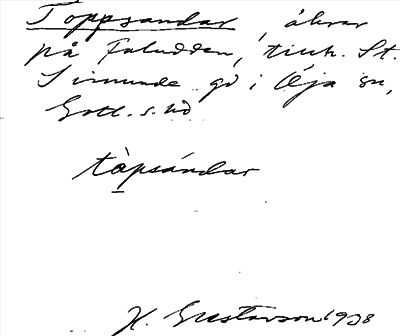 Toppsandar, åkrar
på Faludden, tillh. St.
Simunde gd i Öja sn,
Gotl. s. hd
tàpsándar
H. Gustavson 1938